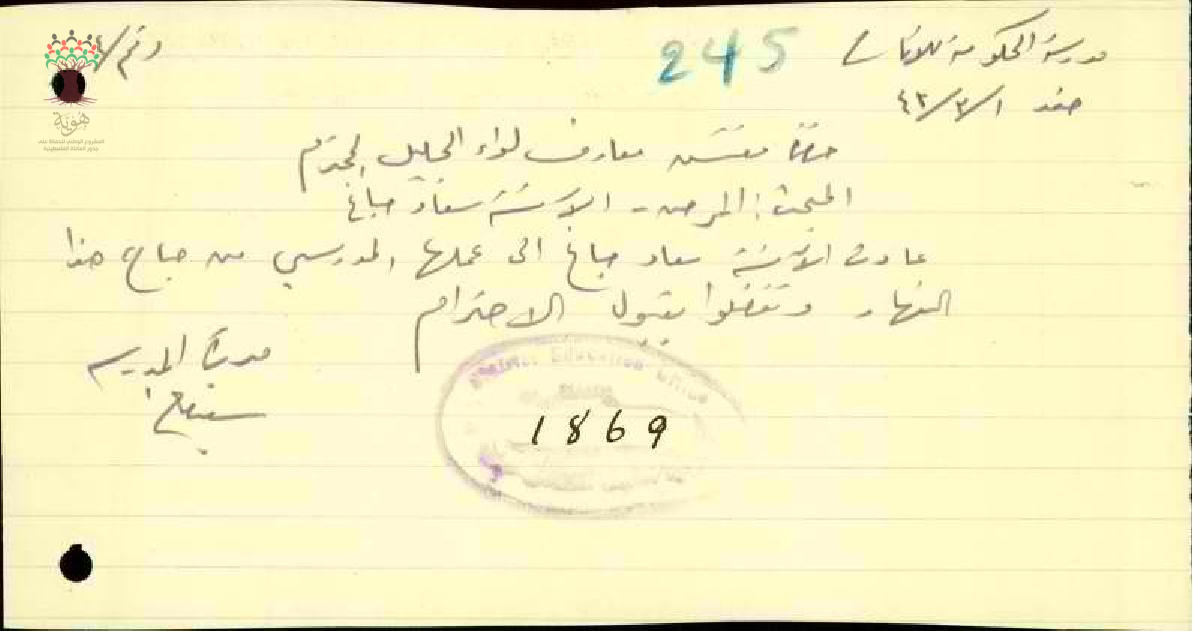 مدرسة الحكومة للاناث
245
رقم/
صفد ١/٣/٤٢
حضرة مفتش معارف لواء الجليل المحترم
المبحث: المرض - الآنسة سعاد صباغ
عادت الآنسة سعاد صباغ الى عملها المدرسي من صباح هذا
النهار وتفضلوا بقبول الاحترام
مديرة المدرسة
District Education Office
1869
هوية
المشروع الوطني للحفاظ على
جذور العائلة الفلسطينية